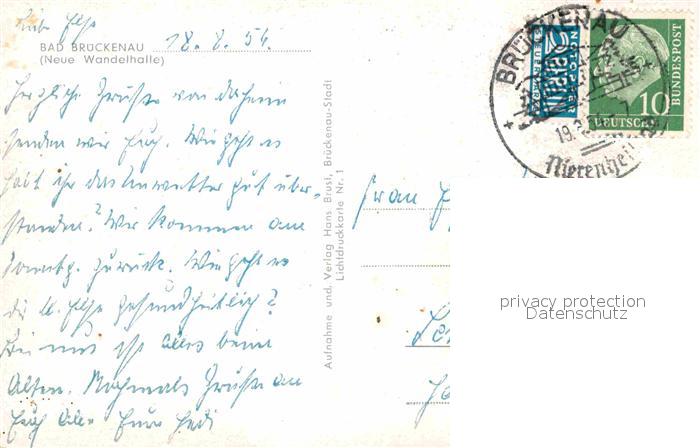 Liebe Else
BAD BRÜCKENAU 18. 8. 54.
(Neue Wandelhalle)
Herzliche Grüsse von daheim
senden wir Euch. Wie geht es
habt ihr das Unwetter gut über-
standen? Wir kommen am
Sonntg. zurück. Wie geht es
dir lb. Else gesundheitlich?
Bei uns ist alles beim
Alten. Nochmals Grüsse an
Euch alle Eure Hedi
Aufnahme und Verlag Hans Brust, Brückenau-Stadt
Lichtdruckkarte Nr. 1
Frau
BRÜCKENAU
19.
NOTOPFER
2 BERLIN
STEUERMARKE
DEUTSCHE
BUNDESPOST
10
privacy protection
Datenschutz